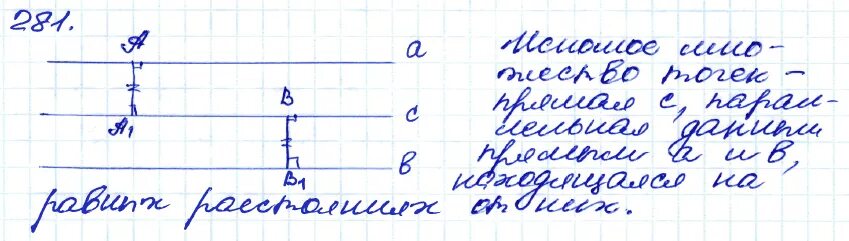 281.
A
a
Искомое мно-
жество точек -
B
c
прямая c, парал-
A₁
лельная данным
прямым a и b,
b
B₁
находящаяся на
равных расстояниях от них.